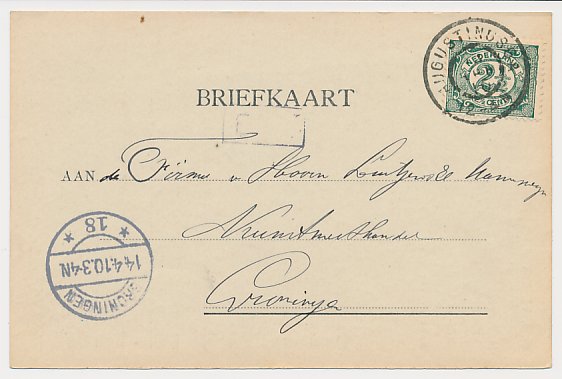 AUGUSTINUSG
NEDERLAND
2½
CENT
BRIEFKAART
AAN de Firma v Hoorn Luitjens &
Kunstmesthandel
Groningen
* 18 *
14.4.10.3-4N
GRONINGEN